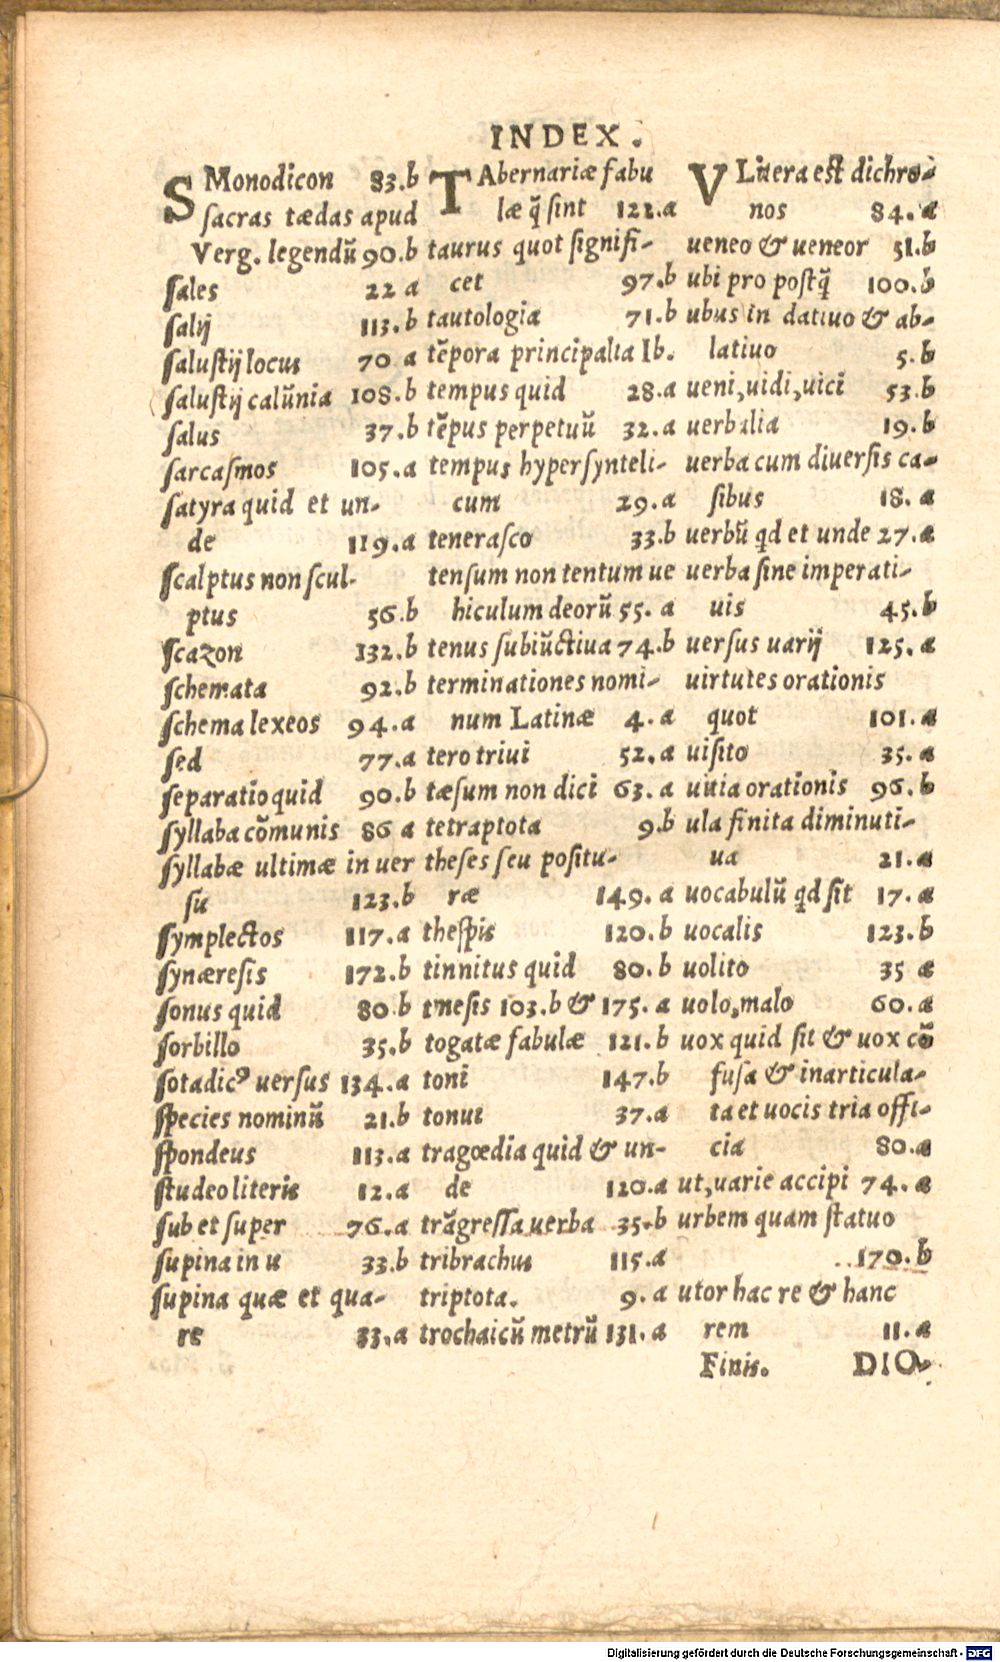 INDEX.
S Monodicon 83.b
ſacras tædas apud
Verg. legendũ 90.b
ſales 22 a
ſalij 113.b
ſaluſtij locus 70 a
ſaluſtij calũnia 108.b
ſalus 37.b
ſarcaſmos 105.a
ſatyra quid et un-
de 119.a
ſcalptus non ſcul-
ptus 56.b
ſcazon 132.b
ſchemata 92.b
ſchema lexeos 94.a
ſed 77.a
ſeparatio quid 90.b
ſyllaba cõmunis 86 a
ſyllabæ ultimæ in uer
ſu 123.b
ſymplectos 117.a
ſynæreſis 172.b
ſonus quid 80.b
ſorbillo 35.b
ſotadicꝰ uerſus 134.a
ſpecies nominũ 21.b
ſpondeus 113.a
ſtudeo literis 12.a
ſub et ſuper 76.a
ſupina in u 33.b
ſupina quæ et qua-
re 33.a
TAbernariæ fabu
læ q̃ ſint 122.a
taurus quot ſignifi-
cet 97.b
tautologia 71.b
tẽpora principalia Ib.
tempus quid 28.a
tẽpus perpetuũ 32.a
tempus hyperſynteli-
cum 29.a
teneraſco 33.b
tenſum non tentum ue
hiculum deorũ 55. a
tenus ſubiũctiua 74.b
terminationes nomi-
num Latinæ 4. a
tero triui 52.a
tæſum non dici 63. a
tetraptota 9.b
theſes ſeu poſitu-
ræ 149. a
theſpis 120.b
tinnitus quid 80.b
tmeſis 103.b & 175. a
togatæ fabulæ 121.b
toni 147.b
tonui 37.a
tragœdia quid & un-
de 120.a
trãgreſſa uerba 35.b
tribrachus 115.a
triptota. 9. a
trochaicũ metrũ 131. a
V Litera eſt dichro-
nos 84. a
ueneo & ueneor 51.b
ubi pro poſtq̃ 100.b
ubus in datiuo & ab-
latiuo 5. b
ueni, uidi, uici 53.b
uerbalia 19. b
uerba cum diuerſis ca-
ſibus 18. a
uerbũ qd et unde 27.a
uerba ſine imperati-
uis 45.b
uerſus uarij 125. a
uirtutes orationis
quot 101. a
uiſito 35. a
uitia orationis 96. b
ula finita diminuti-
ua 21. a
uocabulũ qd ſit 17. a
uocalis 123. b
uolito 35 a
uolo, malo 60. a
uox quid ſit & uox cõ
fuſa & inarticula-
ta et uocis tria offi-
cia 80.a
ut, uarie accipi 74. a
urbem quam ſtatuo
170. b
utor hac re & hanc
rem 11. a
Finis. DIO-
Digitalisierung gefördert durch die Deutsche Forschungsgemeinschaft - DFG